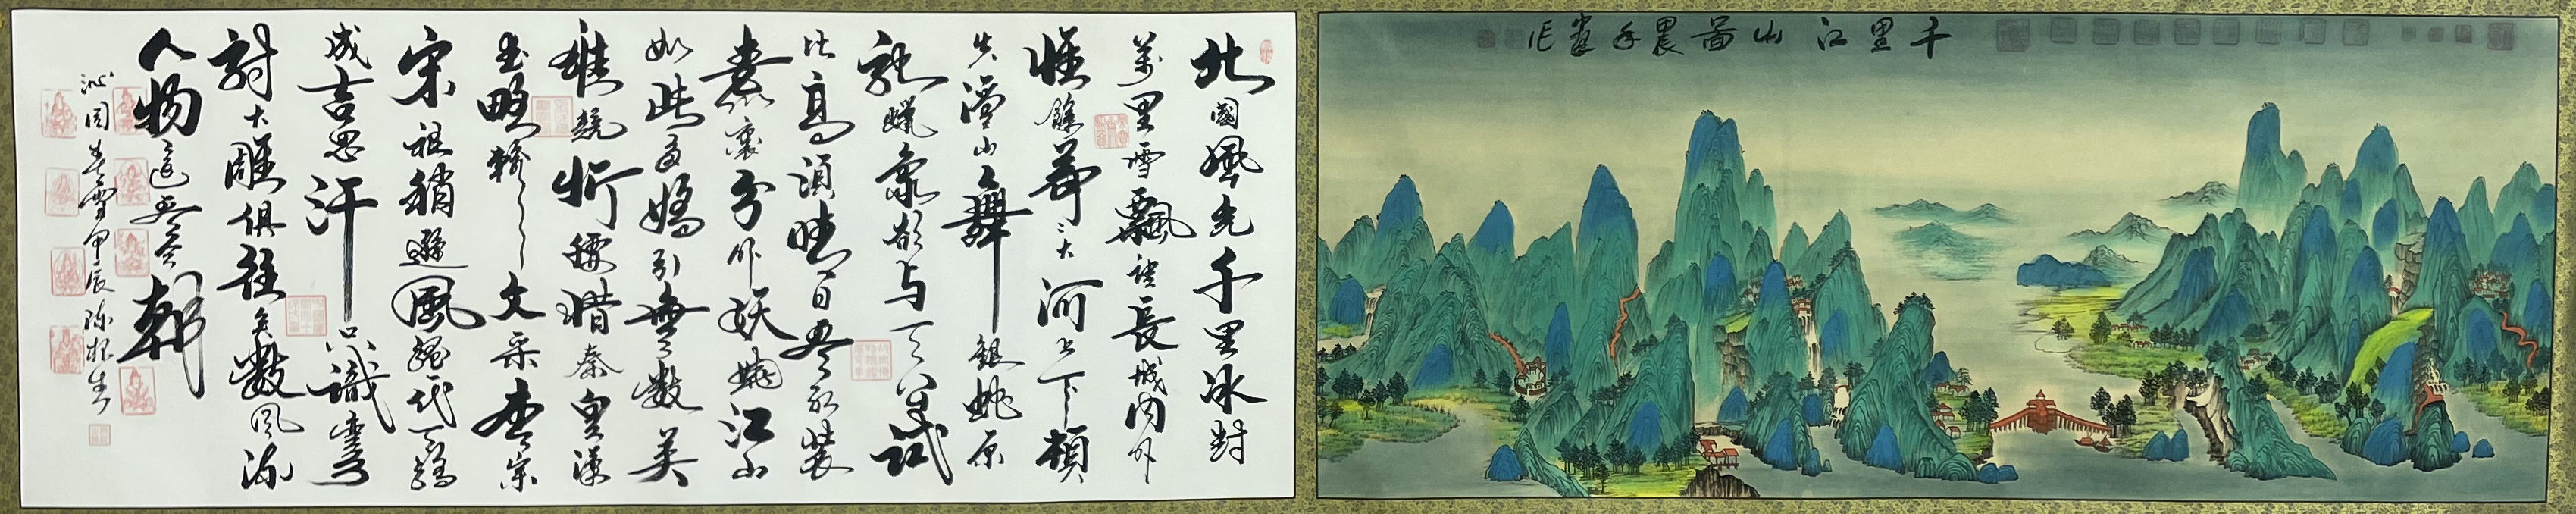 千里江山啚
北國風光千里冰封
萬里雪飄望長城内外
惟餘莽〻大河上下頓
失滔山舞銀蛇原
馳蠟象欲与天公試
比高須晴日看紅裝
素裹分外妖嬈江山
如此多嬌引無數英
雄競折腰惜秦皇漢
武略輸文采唐宗
宋祖稍遜風騷一代天驕
成吉思汗只識彎弓
射大雕俱往矣數風流
人物還看今朝
沁園春雪甲辰陈